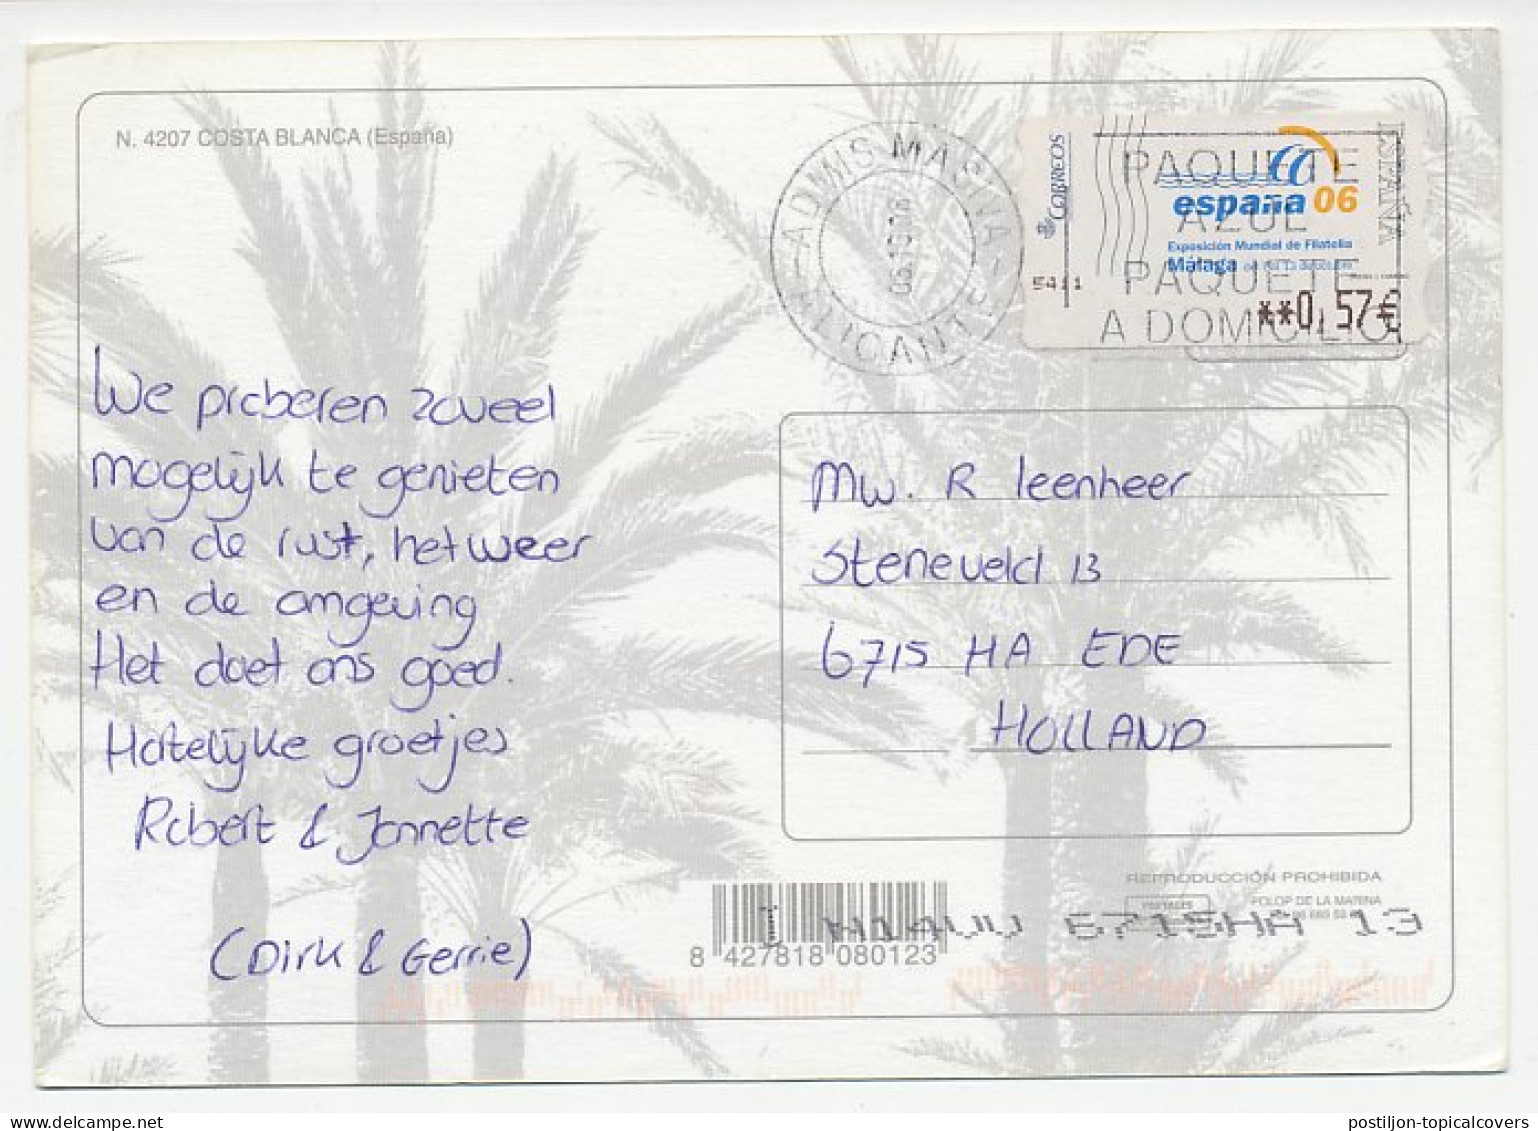 N. 4207 COSTA BLANCA (España)
ADMIS MASIVA
ALICANTE
CORREOS
ESPAÑA
españa 06
Exposición Mundial de Filatelia
Málaga
5411
**0,57€
PAQUETE
AZUL
PAQUETE
A DOMICILIO
We proberen zoveel
mogelijk te genieten
van de rust, het weer
en de omgeving
Het doet ons goed.
Hartelijke groetjes
Robert & Jannette
(Dirk & Gerrie)
Mw. R leenheer
Steneveld 13
6715 HA EDE
HOLLAND
REPRODUCCIÓN PROHIBIDA
POLOP DE LA MARINA
6715HA 13
8 427818 080123
postiljon-topicalcovers